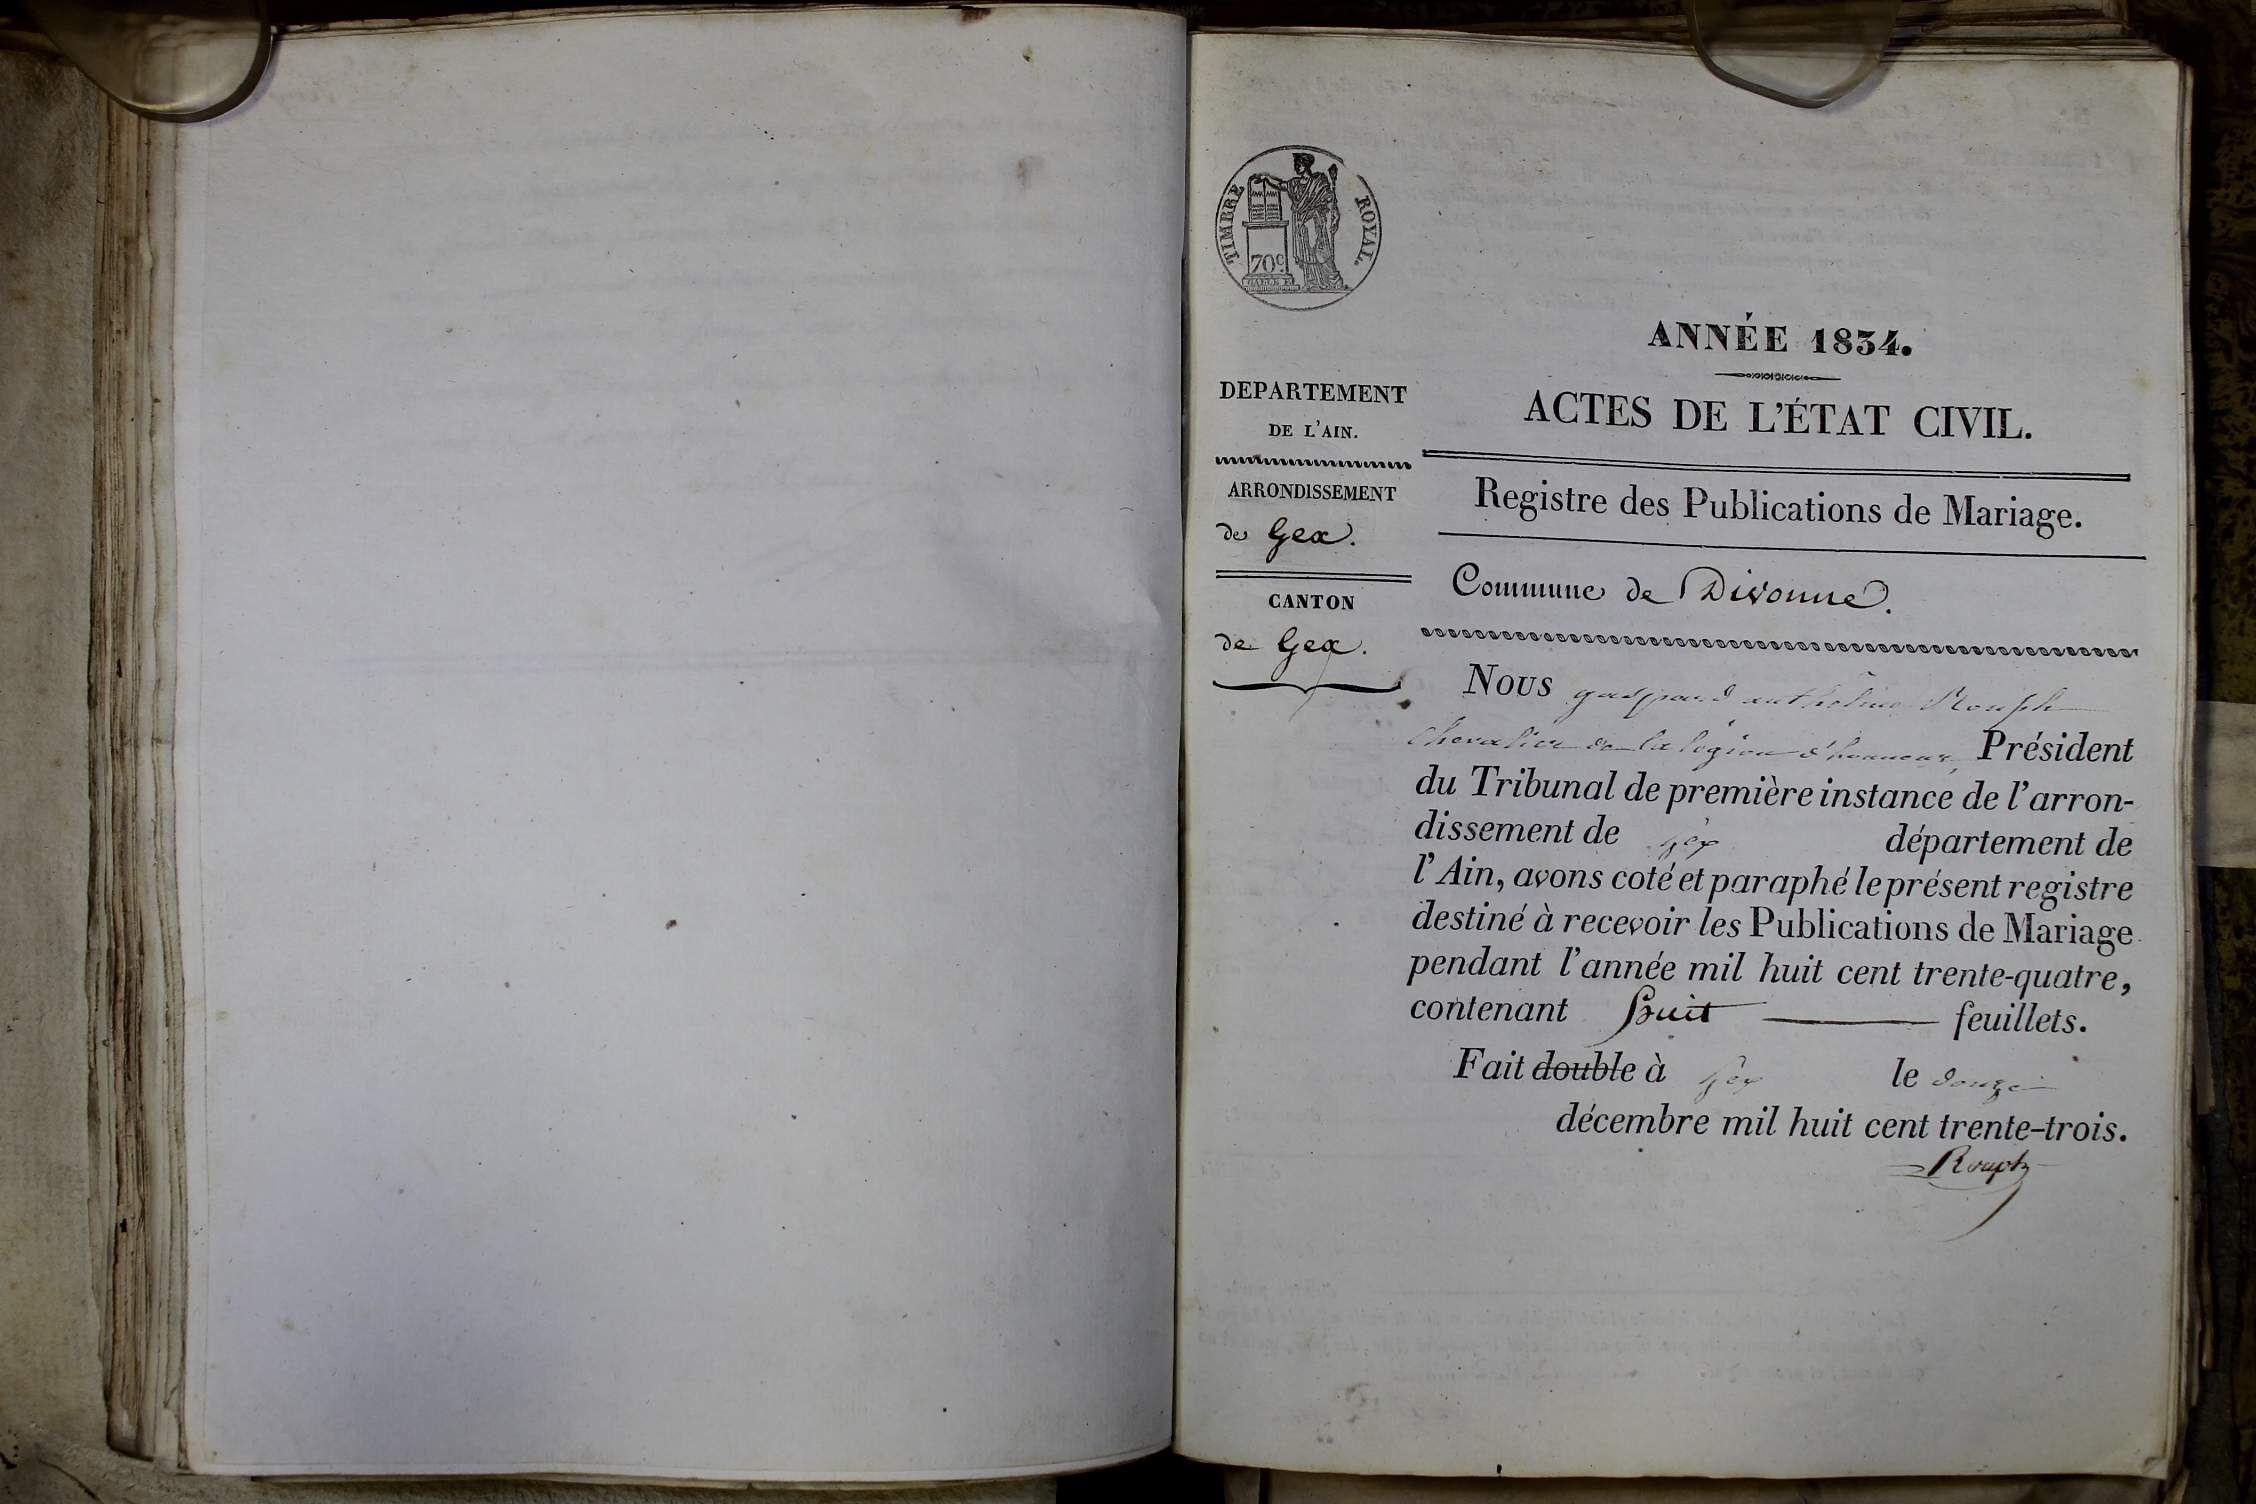 TIMBRE ROYAL.
70c.
ANNÉE 1834.
DEPARTEMENT
DE L'AIN.
ARRONDISSEMENT
de Gex.
CANTON
de Gex.
ACTES DE L'ÉTAT CIVIL.
Registre des Publications de Mariage.
Commune de Divonne.
Nous gaspard anthelme Rouph
chevalier de la légion d'honneur, Président
du Tribunal de première instance de l'arron-
dissement de gex département de
l'Ain, avons coté et paraphé le présent registre
destiné à recevoir les Publications de Mariage
pendant l'année mil huit cent trente-quatre,
contenant huit feuillets.
Fait double à gex le douze
décembre mil huit cent trente-trois.
Rouph